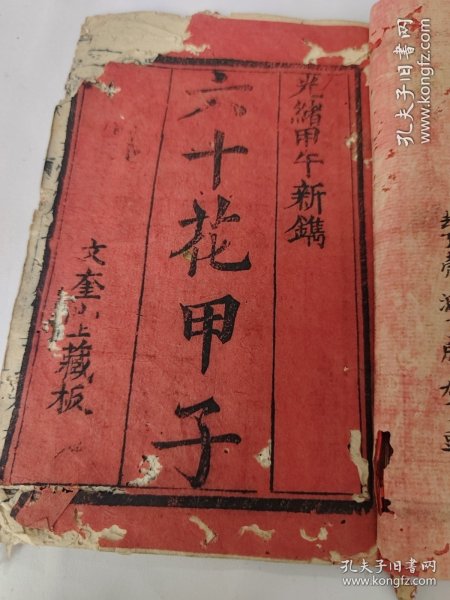 光緒甲午新鐫
六十花甲子
文奎山上藏板
孔夫子旧书网
www.kongfz.com
孔夫子旧书网
www.kongfz.com